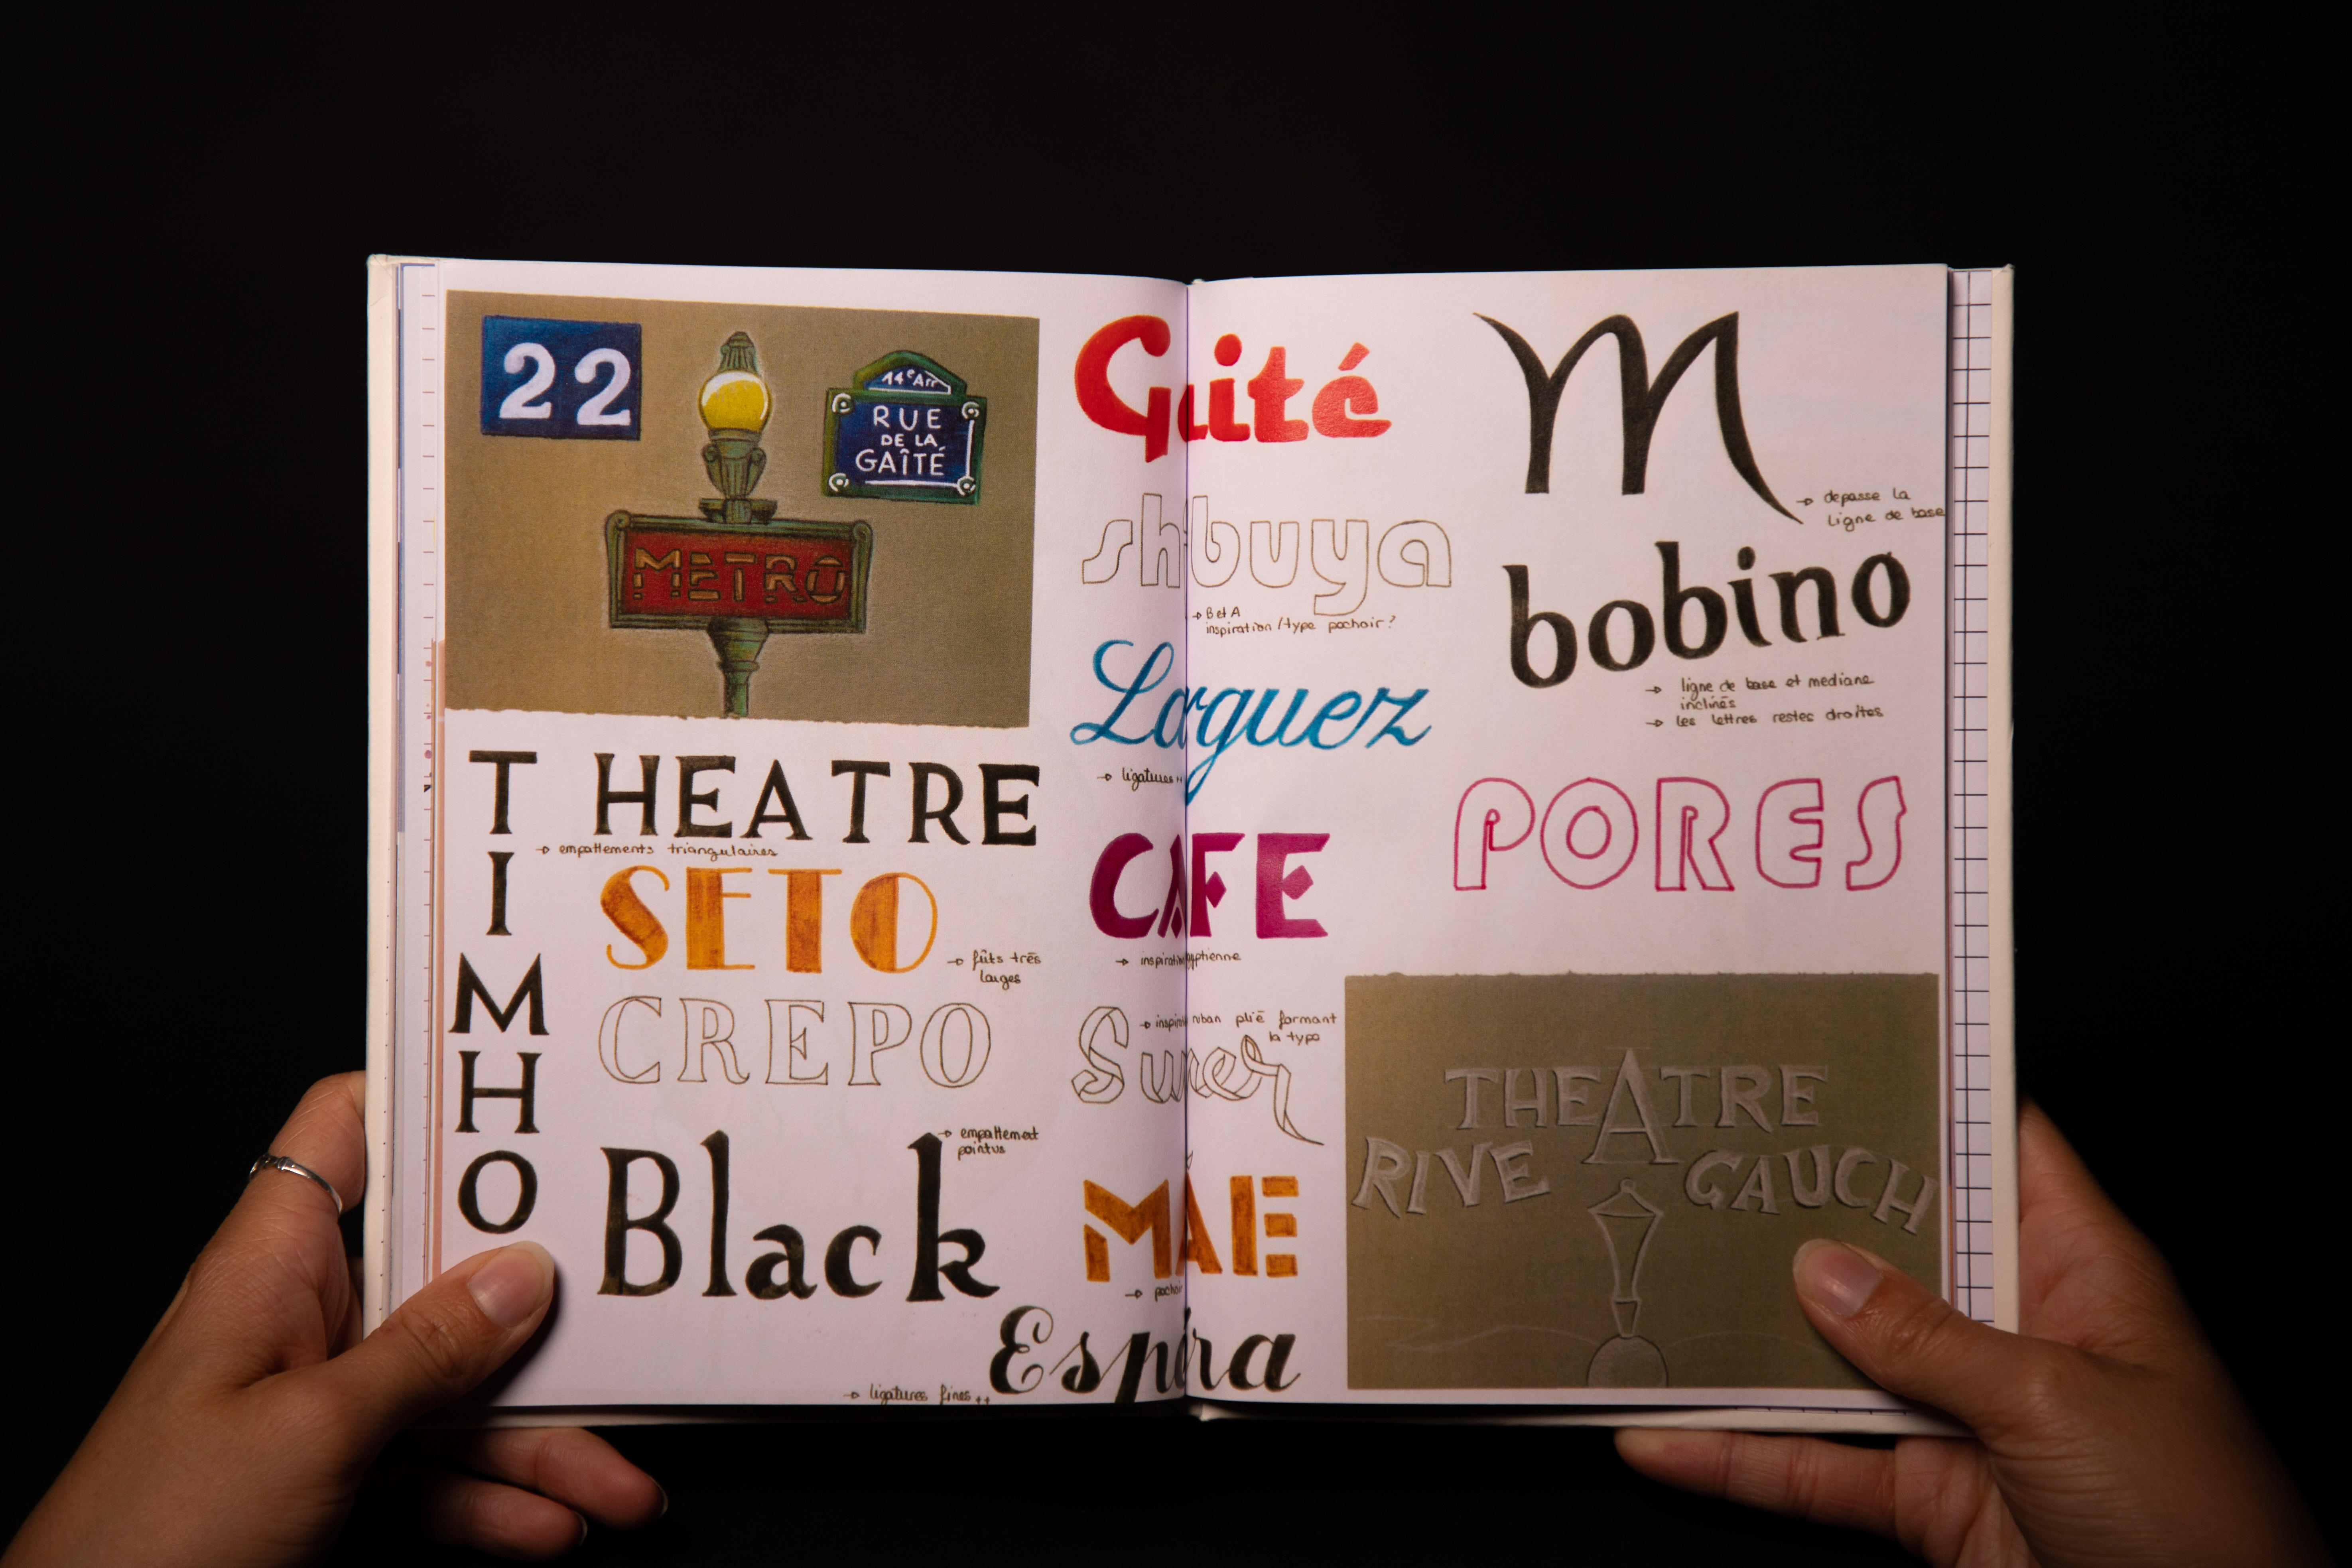 22
14e Arr
RUE
DE LA
GAÎTÉ
METRO
THEATRE
→ empattements triangulaires
TIMHO
SETO
→ fûts très
larges
CREPO
Black
→ empattement
pointus
Espéra
→ ligatures fines ++
Gaité
shbuya
→ B et A
inspiration / type pochoir ?
Laguez
→ ligatures ++
CAFE
→ inspiration
→ ruban plié formant
la typo
MAE
→ pochoir
M
→ depasse la
ligne de base
bobino
→ ligne de base et mediane
inclinés
→ les lettres restes droites
PORES
THEATRE
RIVE GAUCH